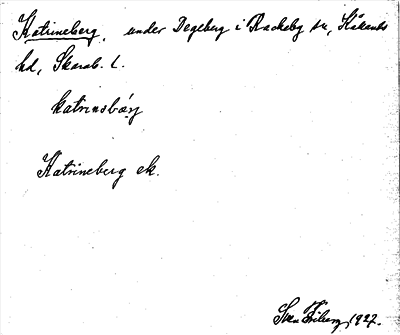 Katrineberg, under Degeberg i Rackeby sn, Kållands
hd, Skarab. l.
katrinsbærj
Katrineberg ek.
1927.